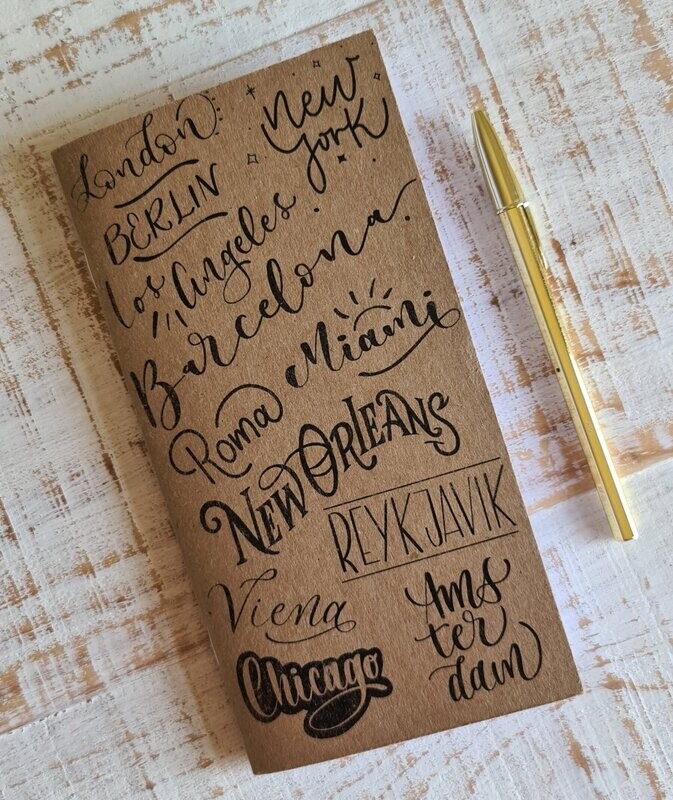 London
New
York
BERLIN
Los Angeles
Barcelona
Miami
Roma
NEW ORLEANS
REYKJAVIK
Viena
Ams
ter
dam
Chicago